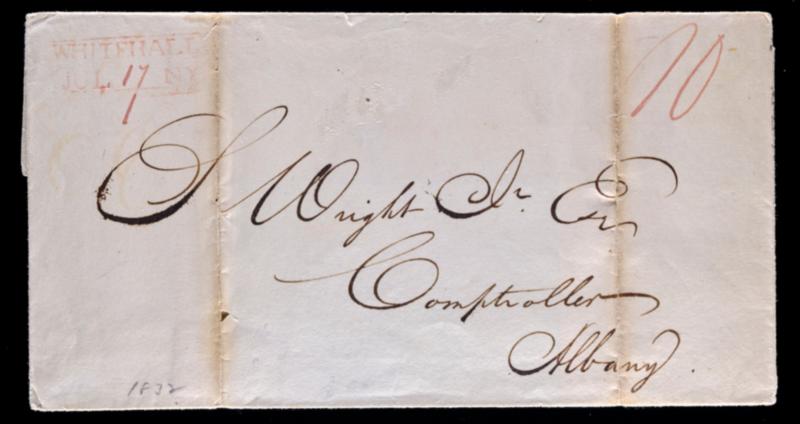 WHITEHALL
JUL 17 NY
1
10
S Wright Jr. Esr
Comptroller
Albany.
1832